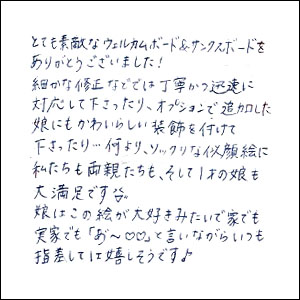 とても素敵なウェルカムボード&サンクスボードを
ありがとうございました!
細かな修正などでは丁寧かつ迅速に
対応して下さったり、オプションで追加した
娘にもかわいらしい装飾を付けて
下さったり…何より、ソックリな似顔絵に
私たちも両親たちも、そして1才の娘も
大満足です
娘はこの絵が大好きみたいで家でも
実家でも「あ゛~♡♡」と言いながらいつも
指差しては嬉しそうです♪